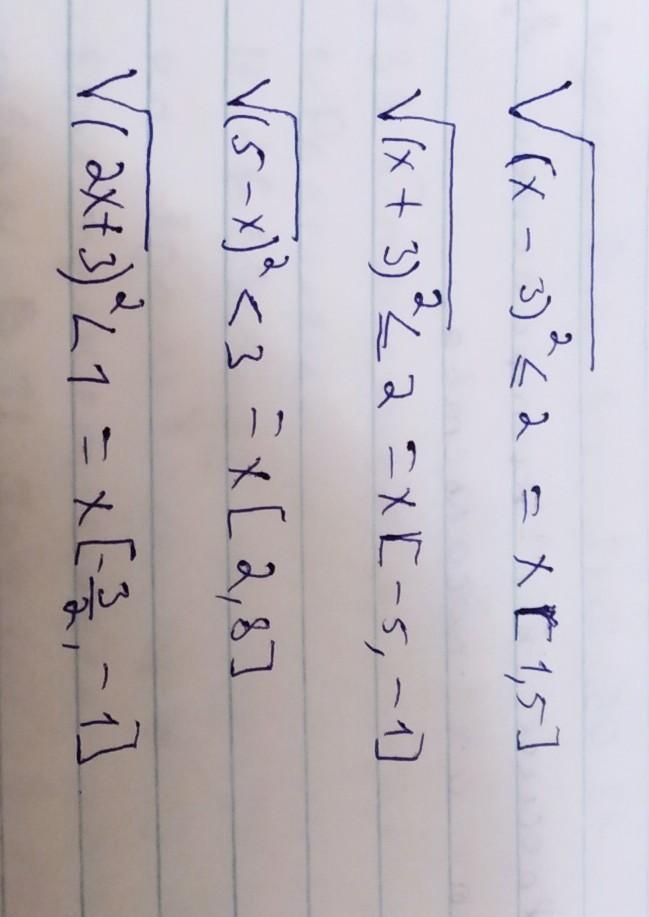 √(x-3)² ≤ 2 = x[1,5]
√(x+3)² ≤ 2 = x[-5,-1]
√(5-x)² < 3 = x[2,8]
√(2x+3)² < 1 = x[-3/2,-1]